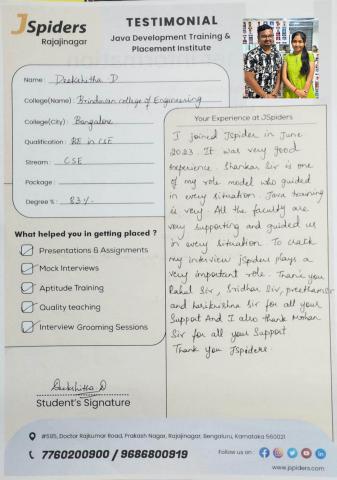 JSpiders
Rajajinagar
TESTIMONIAL
Java Development Training &
Placement Institute
Name : Deekshitha D
College(Name) : Brindavan college of Engineering
College(City) : Bangalore
Qualification : BE in CSE
Stream : CSE
Package :
Degree % : 83 %
What helped you in getting placed ?
Presentations & Assignments
Mock Interviews
Aptitude Training
Quality teaching
Interview Grooming Sessions
Deekshitha D
Student's Signature
Your Experience at JSpiders
I joined JSpider in June
2023. It was very good
experience. Shankar Sir is one
of my role model who guided
in every situation. Java training
is very. All the faculty are
very supporting and guided us
in every situation. To crack
my interview jSpiders plays a
very important role. Thank you
Rahul Sir, Sridhar Sir, preetham Sir
and harikrishna Sir for all your
Support And I also thank Mohan
Sir for all your Support
Thank you JSpiders.
#595, Doctor Rajkumar Road, Prakash Nagar, Rajajinagar, Bengaluru, Karnataka 560021
7760200900 / 9686800919
Follow us on :
www.jspiders.com